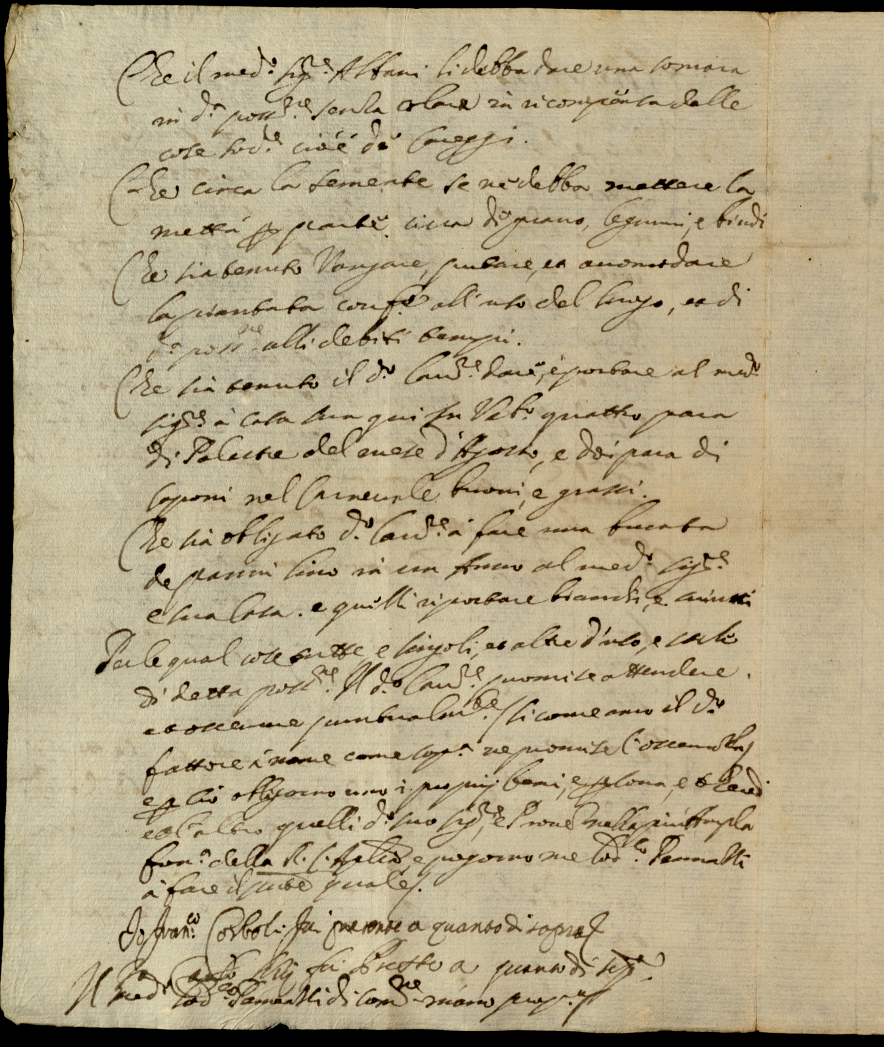 Che il med.º sig.re Albani li debba dare una somara
in d.a poss.ne senza in ricompensa delle
cose sud.e cioè di Careggi.
Che circa la semente se ne debba mettere la
mettà p parte circa di grano, legumi, e
Che sia tenuto Vangare, putare, et accomodare
la piantata conf.e all'uso del luogo, et di
d.a poss.ne alli debiti tempi.
Che sia tenuto il d.º Lau.re dare, e portare al med.º
sig.re à casa sua qui in quattro para
di Polastre del mese d'Agosto, e doi para di
Caponi nel Carneuale buoni, e grassi.
Che sia obligato d.º Lau.re à fare una bucata
de panni lino in un Anno al med.º sig.re
e sua Casa. e quelli riportare bianchi, e
Per le qual cose tutte e singoli, et altre d'uso, e
di detta poss.ne Il d.º Lau.re promise attendere
et osseruare puntualm.te si come anco il d.º
fattore à nome come sop.a ne promise l'osseruanza
e p ciò obligorno uno i proprij beni, e p.sona, e Heredi
et l'altro quelli d.º suo sig.re, e Prone nella più Ampla
for.a della R. C. Aplica e pregorno me Lod.co
à fare il pnte quale.
Io Fran.co Corboli fui presente a quanto di sopra
fui Presente a quanto di sop.a
Il med.º Lod.co di com.ne mano prop.a